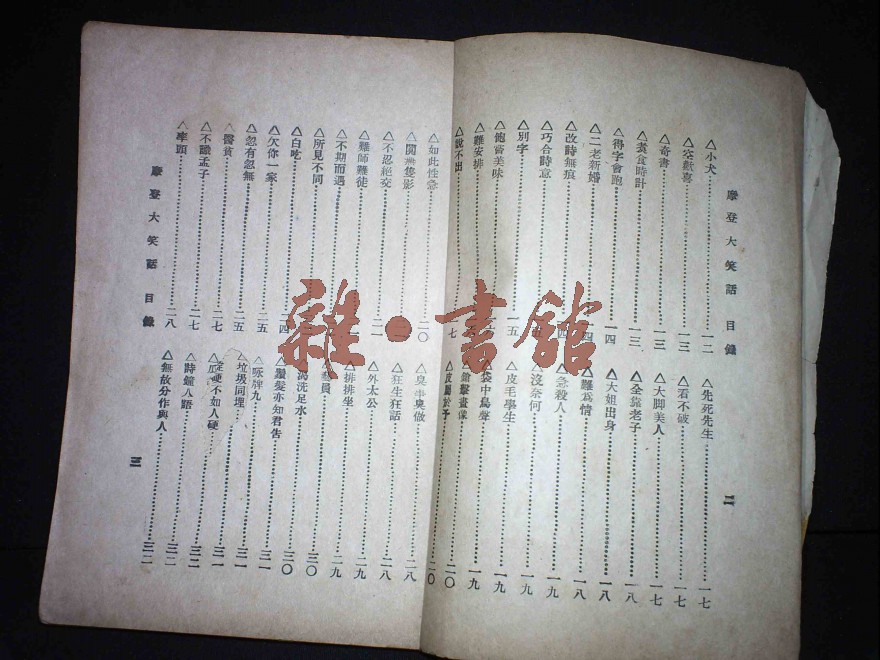 摩登大笑話 目錄
△小犬……一二
△空歡喜……一三
△奇書……一三
△袋食時計……一三
△得字會跑……一四
△二老新婚……一四
△改時無痕……一四
△巧合時意
△別字……一五
△他嘗美味
△難安排
△說不出……七
△先死先生……一七
△看不破……一七
△大脚美人……一七
△全靠老子……一八
△大姐出身……一八
△難爲情……一八
△急殺人……一九
△沒奈何……一九
△皮毛學生……一九
△袋中鳥聲……一九
△鎗擊畫像……一九
△皮屬於予……二〇
二
△如此性急……二〇
△開燕隻影
△不忍絕交……二一
△難師難徒
△不期而遇
△所見不同
△白吃……四
△欠你一家……二五
△忽有忽無……二五
△醫貧……二七
△不識孟子……二七
△牽頭……二八
△臭事臭做……二〇
△狂生狂話……二八
△外太公……二八
△排排坐……二九
員……二九
洗足水……三〇
△鬚髮亦知君吿……三〇
△咏牌九……三一
△垃圾同埋……三一
△瓜硬不如人硬……三一
△時鐘入語……三二
△無故分作與人……三二
摩登大笑話 目錄
三
雜·書館